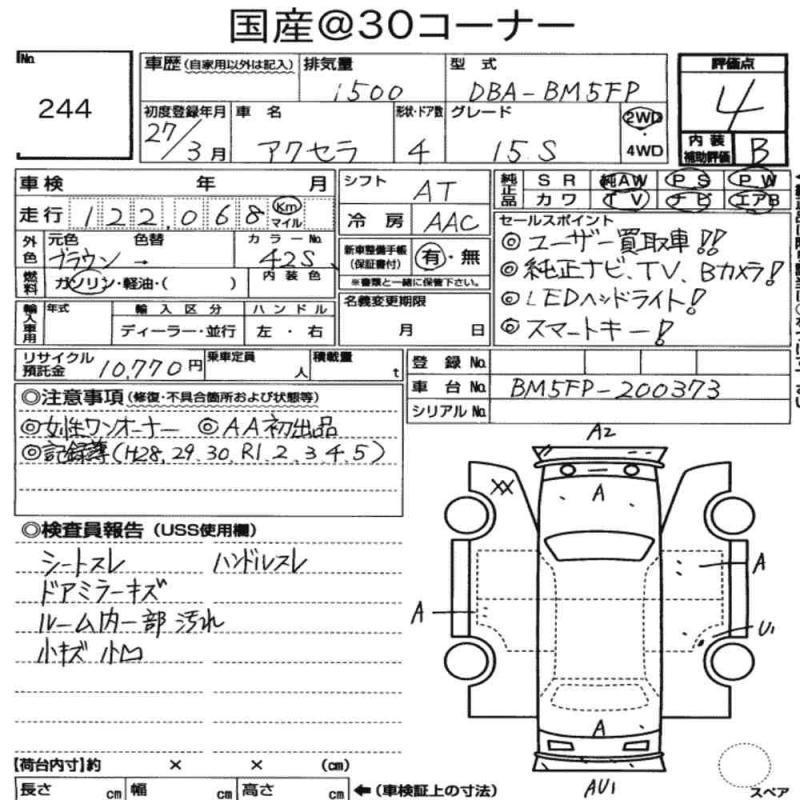 国産@30コーナー
No. 244
車歴(自家用以外は記入) 排気量 1500 型式 DBA-BM5FP
初度登録年月 27/3月 車名 アクセラ 形状・ドア数 4 グレード 15S 2WD・4WD
評価点 4
内装補助評価 B
車検 年 月
走行 122,068 Km マイル
外色 元色 ブラウン 色替 → カラーNo. 42S
燃料 ガソリン・軽油・( ) 内装色
輸入車用 年式 輸入区分 ディーラー・並行 ハンドル 左・右
シフト AT
冷房 AAC
新車整備手帳(保証書付) 有・無
※書類と一緒に保管下さい。
名義変更期限 月 日
純正品 SR 純AW PS PW
カワ TV ナビ エアB
セールスポイント
◎ユーザー買取車!!
◎純正ナビ、TV、Bカメラ!
◎LEDヘッドライト!
◎スマートキー!
リサイクル預託金 10,770円 乗車定員 人 積載量 t
登録No.
車台No. BM5FP-200373
シリアルNo.
◎注意事項(修復・不具合箇所および状態等)
◎女性ワンオーナー ◎AA初出品
◎記録簿(H28,29,30,R1.2.3.4.5)
◎検査員報告(USS使用欄)
シートスレ ハンドルスレ
ドアミラーキズ
ルーム内一部汚れ
小キズ 小凹
A2
XX
A
A
A
U1
A
AU1
スペア
【荷台内寸】約 × × (cm)
長さ cm 幅 cm 高さ cm ←(車検証上の寸法)